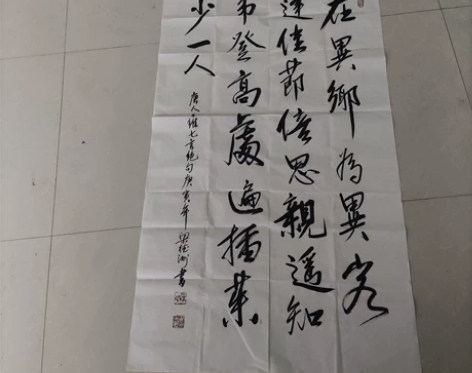 在異鄉為異客
逢佳節倍思親遥知
弟登高處遍插茱
少一人
唐人王維七言絕句庚寅年梁德洲書